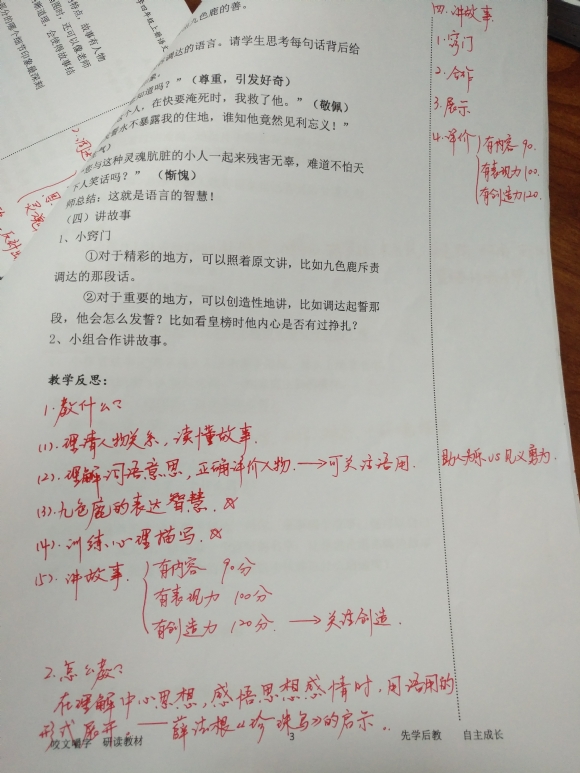 九色鹿的善。
调达的语言。请学生思考每句话背后给
知道吗？”（尊重，引发好奇）
个人，在快要淹死时，我救了他。”（敬佩）
永不暴露我的住地，谁知他竟然见利忘义！”
与这种灵魂肮脏的小人一起来残害无辜，难道不怕天
下人笑话吗？”（惭愧）
师总结：这就是语言的智慧！
（四）讲故事
1、小窍门
①对于精彩的地方，可以照着原文讲，比如九色鹿斥责
调达的那段话。
②对于重要的地方，可以创造性地讲，比如调达起誓那
段，他会怎么发誓？比如看皇榜时他内心是否有过挣扎？
2、小组合作讲故事。
教学反思：
1.教什么？
(1).理清人物关系，读懂故事.
(2).理解词语意思，正确评价人物.→可关注语用.
助人为乐 VS 见义勇为.
(3).九色鹿的表达智慧.
(4).训练心理描写.
(5).讲故事.
有内容 90分
有表现力 100分
有创造力 120分.→关注创造.
2.怎么教？
在理解中心思想，感悟思想感情时，用语用的
形式展开.——薛法根《珍珠鸟》的启示..
咬文嚼字 研读教材
3
先学后教 自主成长
四.讲故事
1.窍门
2.合作
3.展示
4.评价
有内容 90.
有表现力 100.
有创造力 120.